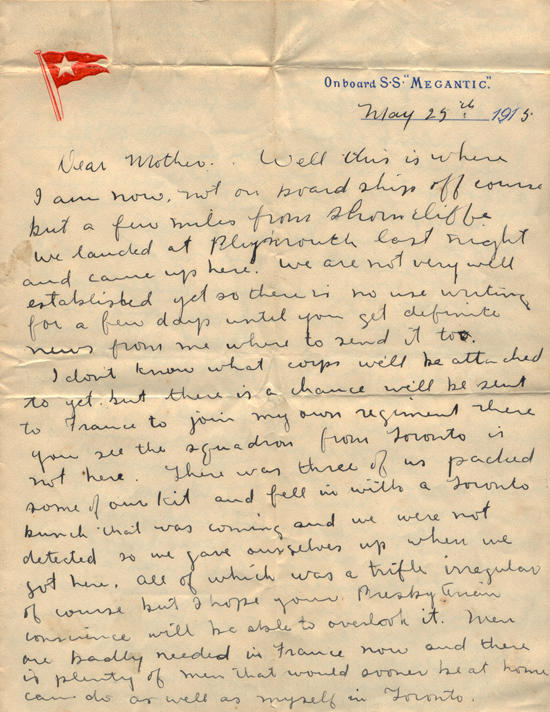 Onboard S.S. "MEGANTIC."
May 25th 1915
Dear Mother. Well this is where
I am now, not on board ship off course
but a few miles from Shorncliffe
we landed at Plymouth last night
and came up here. We are not very well
established yet so there is no use writing
for a few days until you get definite
news from me where to send it too.
I dont know what corps will be attached
to yet but there is a chance will be sent
to France to join my own regiment there
you see the squadron from Toronto is
not here. There was three of us packed
some of our kit and fell in with a Toronto
bunch that was coming and we were not
detected so we gave ourselves up when we
got here. All of which was a trifle irregular
of course but I hope your Presbyterian
conscience will be able to overlook it. Men
are badly needed in France now and there
is plenty of men that would sooner be at home
can do as well as myself in Toronto.